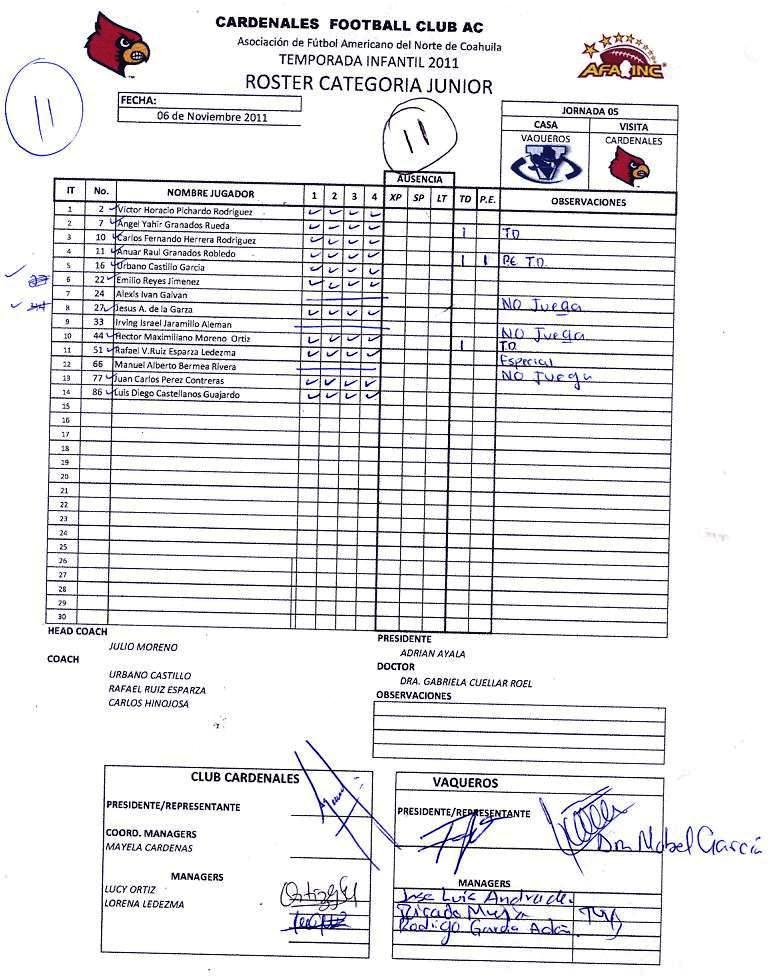 CARDENALES FOOTBALL CLUB AC
Asociación de Fútbol Americano del Norte de Coahuila
TEMPORADA INFANTIL 2011
ROSTER CATEGORIA JUNIOR
AFA INC
11
FECHA:
06 de Noviembre 2011
11
JORNADA 05
CASA VISITA
VAQUEROS CARDENALES
AUSENCIA
IT No. NOMBRE JUGADOR 1 2 3 4 XP SP LT TD P.E. OBSERVACIONES
1 2 Victor Horacio Pichardo Rodriguez
2 7 Angel Yahir Granados Rueda 1 TD
3 10 Carlos Fernando Herrera Rodriguez
4 11 Anuar Raul Granados Robledo 1 1 PE T.D.
5 16 Urbano Castillo Garcia
6 22 Emilio Reyes Jimenez
7 24 Alexis Ivan Galvan NO Juega
8 27 Jesus A. de la Garza
9 33 Irving Israel Jaramillo Aleman NO Juega
10 44 Hector Maximiliano Moreno Ortiz 1 T.D.
11 51 Rafael V.Ruiz Esparza Ledezma Especial
12 66 Manuel Alberto Bermea Rivera NO Juega
13 77 Juan Carlos Perez Contreras
14 86 Luis Diego Castellanos Guajardo
15
16
17
18
19
20
21
22
23
24
25
26
27
28
29
30
HEAD COACH
JULIO MORENO
COACH
URBANO CASTILLO
RAFAEL RUIZ ESPARZA
CARLOS HINOJOSA
PRESIDENTE
ADRIAN AYALA
DOCTOR
DRA. GABRIELA CUELLAR ROEL
OBSERVACIONES
CLUB CARDENALES
PRESIDENTE/REPRESENTANTE
COORD. MANAGERS
MAYELA CARDENAS
MANAGERS
LUCY ORTIZ
LORENA LEDEZMA
VAQUEROS
PRESIDENTE/REPRESENTANTE
Mabel García
MANAGERS
Jose Luis Andrade
Ricardo
Rodrigo Garcia